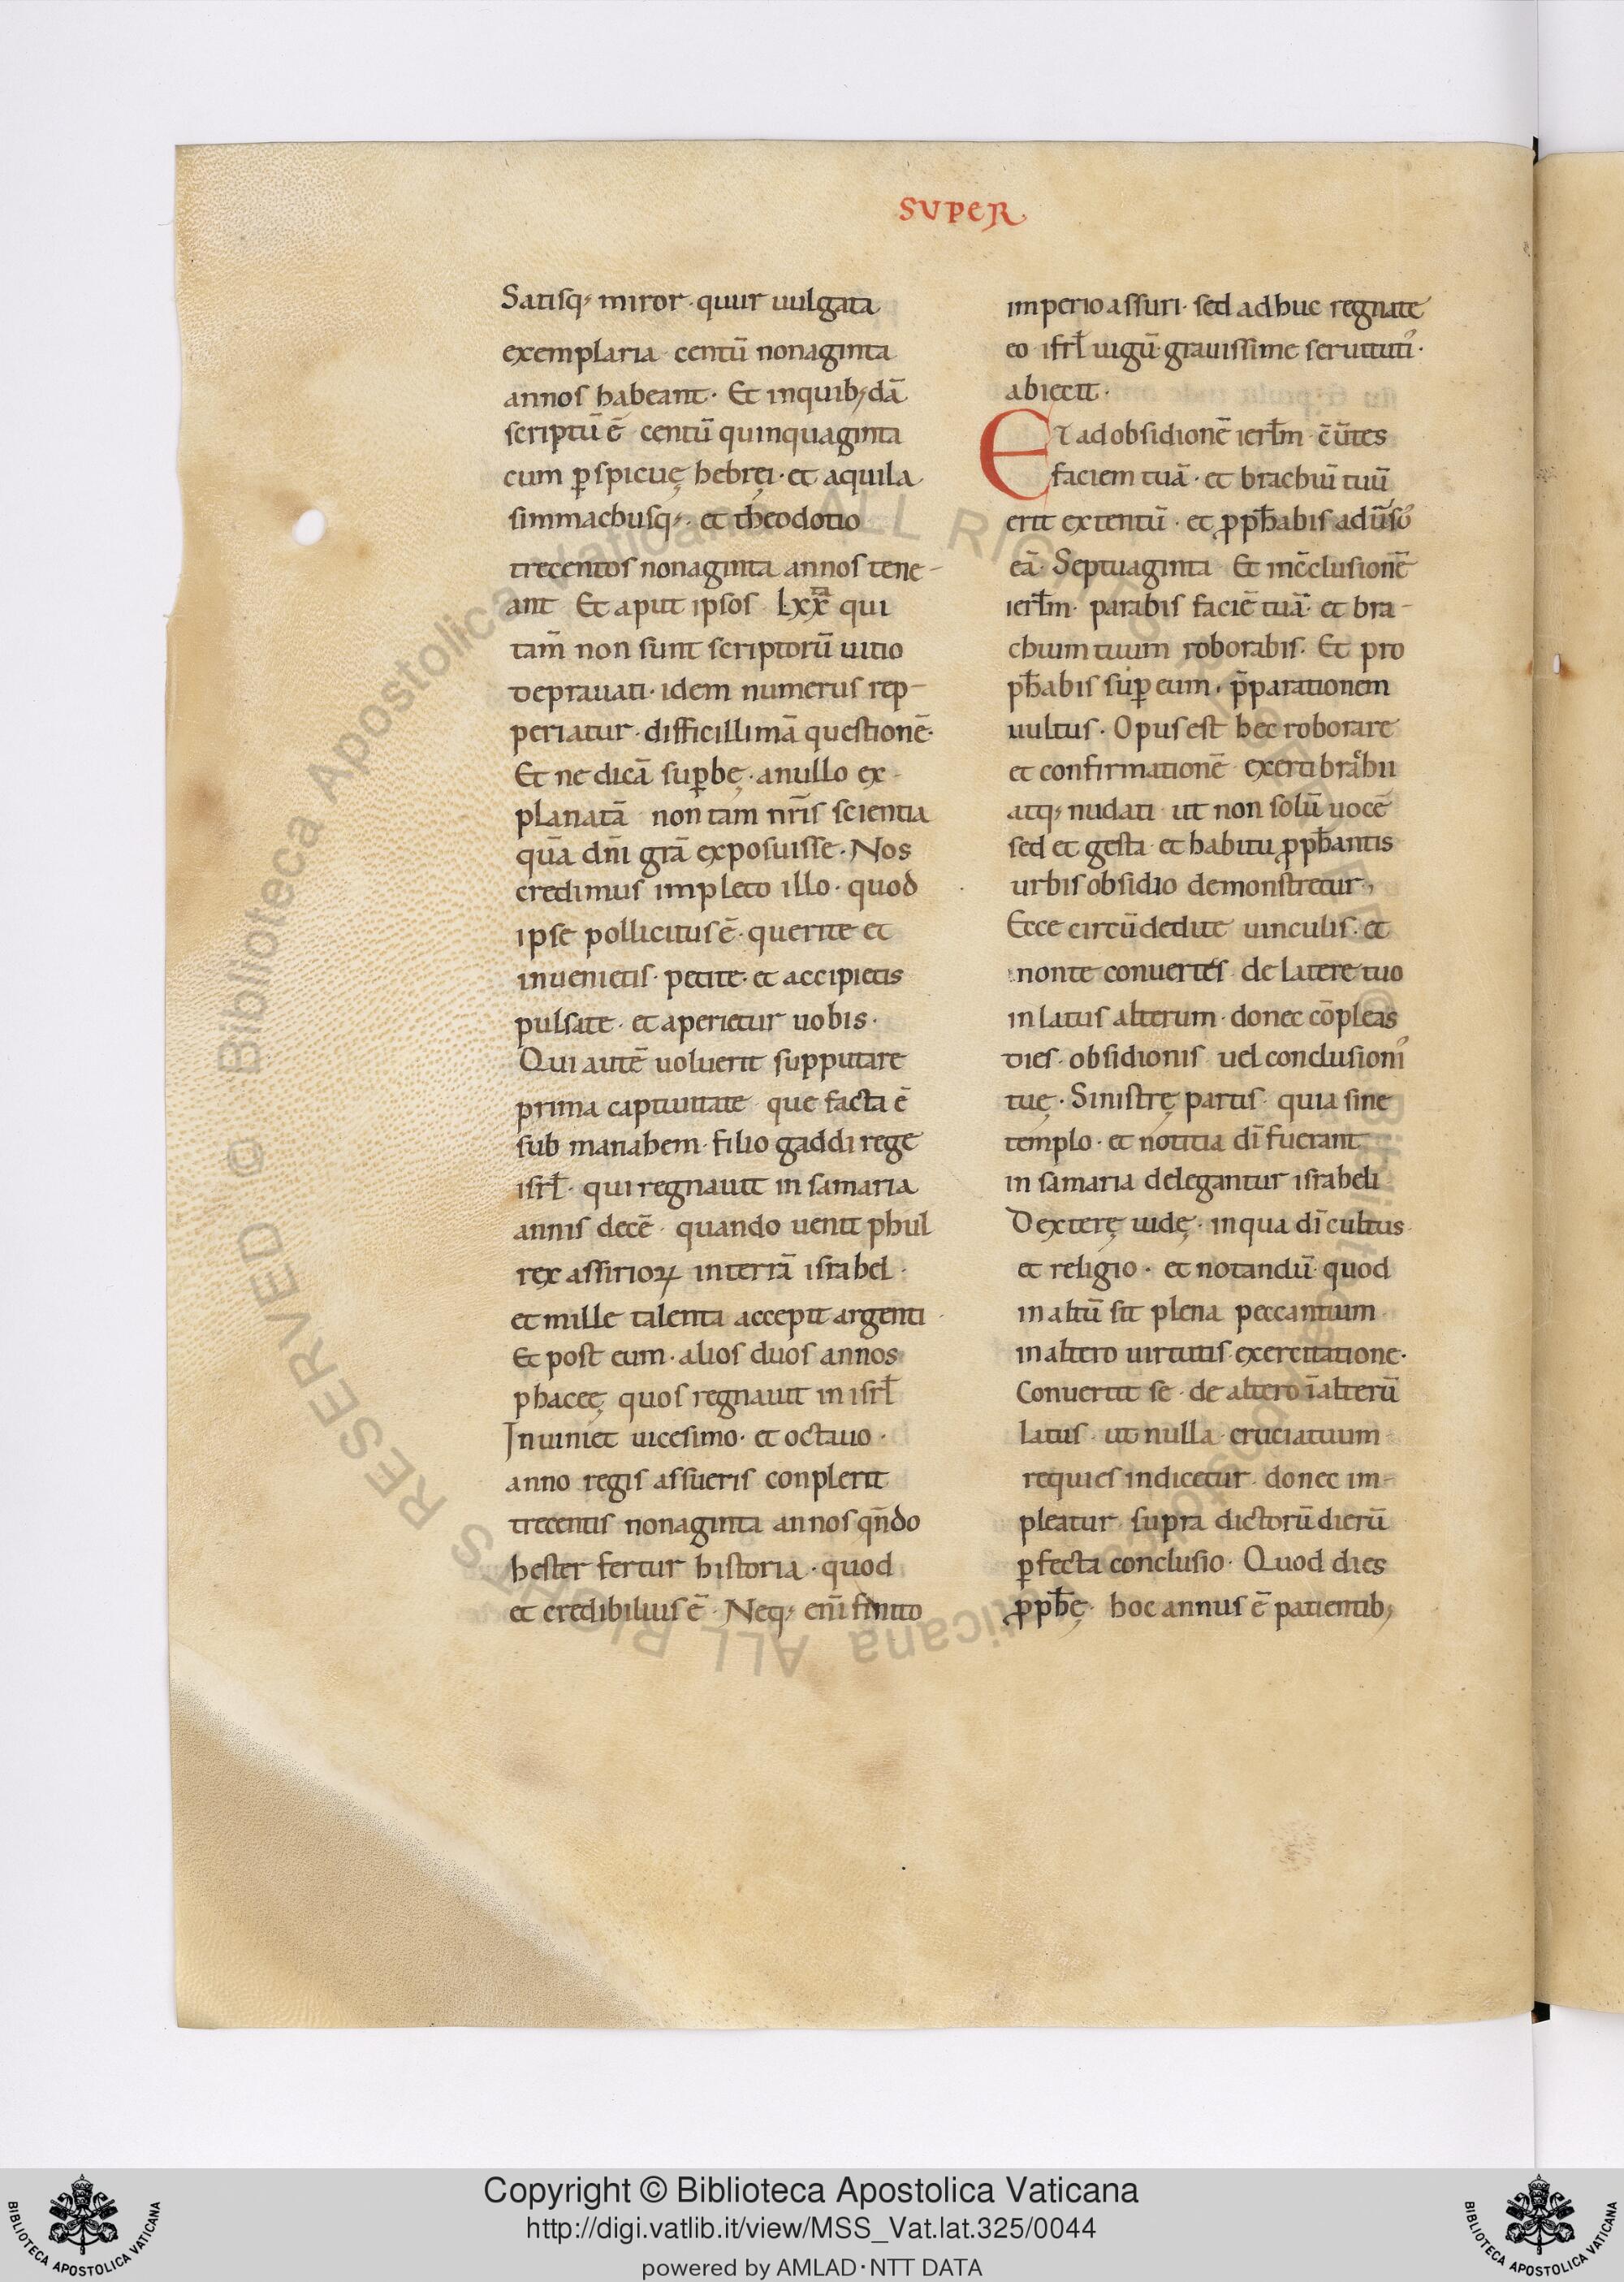 SUPER
Satisq; miror · quur uulgata
exemplaria · centū nonaginta
annos habeant · Et inquib; dā
scriptū ē centū quinquaginta
cum ꝑspicuę hebręi · et aquila
simmachusq; · et theodotio
trecentos nonaginta annos tene-
ant Et aput ipsos Lxx̄ qui
tam̄ non sunt scriptorū uitio
deprauati · idem numerus rep-
periatur · difficillimā questionē ·
Et ne dicā suꝑbę · anullo ex-
planatā non tam nr̄is scientia
quā dn̄i grā exposuisse · Nos
credimus impleto illo · quod
ipse pollicitus ē · querite et
inuenietis · petite · et accipietis
pulsate · et aperietur uobis ·
Qui autē uoluerit supputare
prima captiuitate que facta ē
sub manahem · filio gaddi rege
isrł · qui regnauit in samaria
annis decē · quando uenit phul
rex assirioꝝ interrā israhel ·
et mille talenta accepit argenti ·
Et post eum · alios duos annos
phaceę quos regnauit in isrł
Inuiniet uicesimo · et octauo ·
anno regis assueris conplerit
trecentis nonaginta annos qn̄do
hester fertur historia · quod
et credibilius ē · Neq; eni finito
imperio assuri · sed adhuc regnate
eo isrł iugū grauissime seruituti᾽ ·
abiecit ·
Et ad obsidionē ierłm c̄ūtes
faciem tuā · et brachiū tuū
erit extentū · et ꝓph̄abis adūsū᾽
eā · Septuaginta Et inc̄clusionē
ierłm · parabis faciē tuā · et bra-
chium tuum roborabis · Et pro
ph̄abis suꝑ eum · p̄parationem
uultus · Opus est hec roborare
et confirmationē exerti brachii
atq; nudati · ut non solū uocē
sed et gesta et habitu ꝓph̄antis
urbis obsidio demonstretur,
Ecce circūdedi te uinculis · et
non te conuertes · de latere tuo
in latus alterum · donec cōpleas
dies · obsidionis uel conclusioni᾽
tuę · Sinistrę partis · quia sine
templo · et notitia dī fuerant
in samaria delegantur israheli
Dexterę iudę · in qua dī cultus
et religio · et notandū · quod
in altū sit plena peccantium
in altero uirtutis exercitatione ·
Conuertit se · de altero ī alterū
latus · ut nulla · cruciatuum
requies indicetur · donec im-
pleatur · supra dictorū dierū
ꝑfecta conclusio · Quod dies
ꝓph̄ę · hoc annus ē patientib;
Copyright © Biblioteca Apostolica Vaticana
http://digi.vatlib.it/view/MSS_Vat.lat.325/0044
powered by AMLAD·NTT DATA
BIBLIOTECA APOSTOLICA VATICANA
BIBLIOTECA APOSTOLICA VATICANA